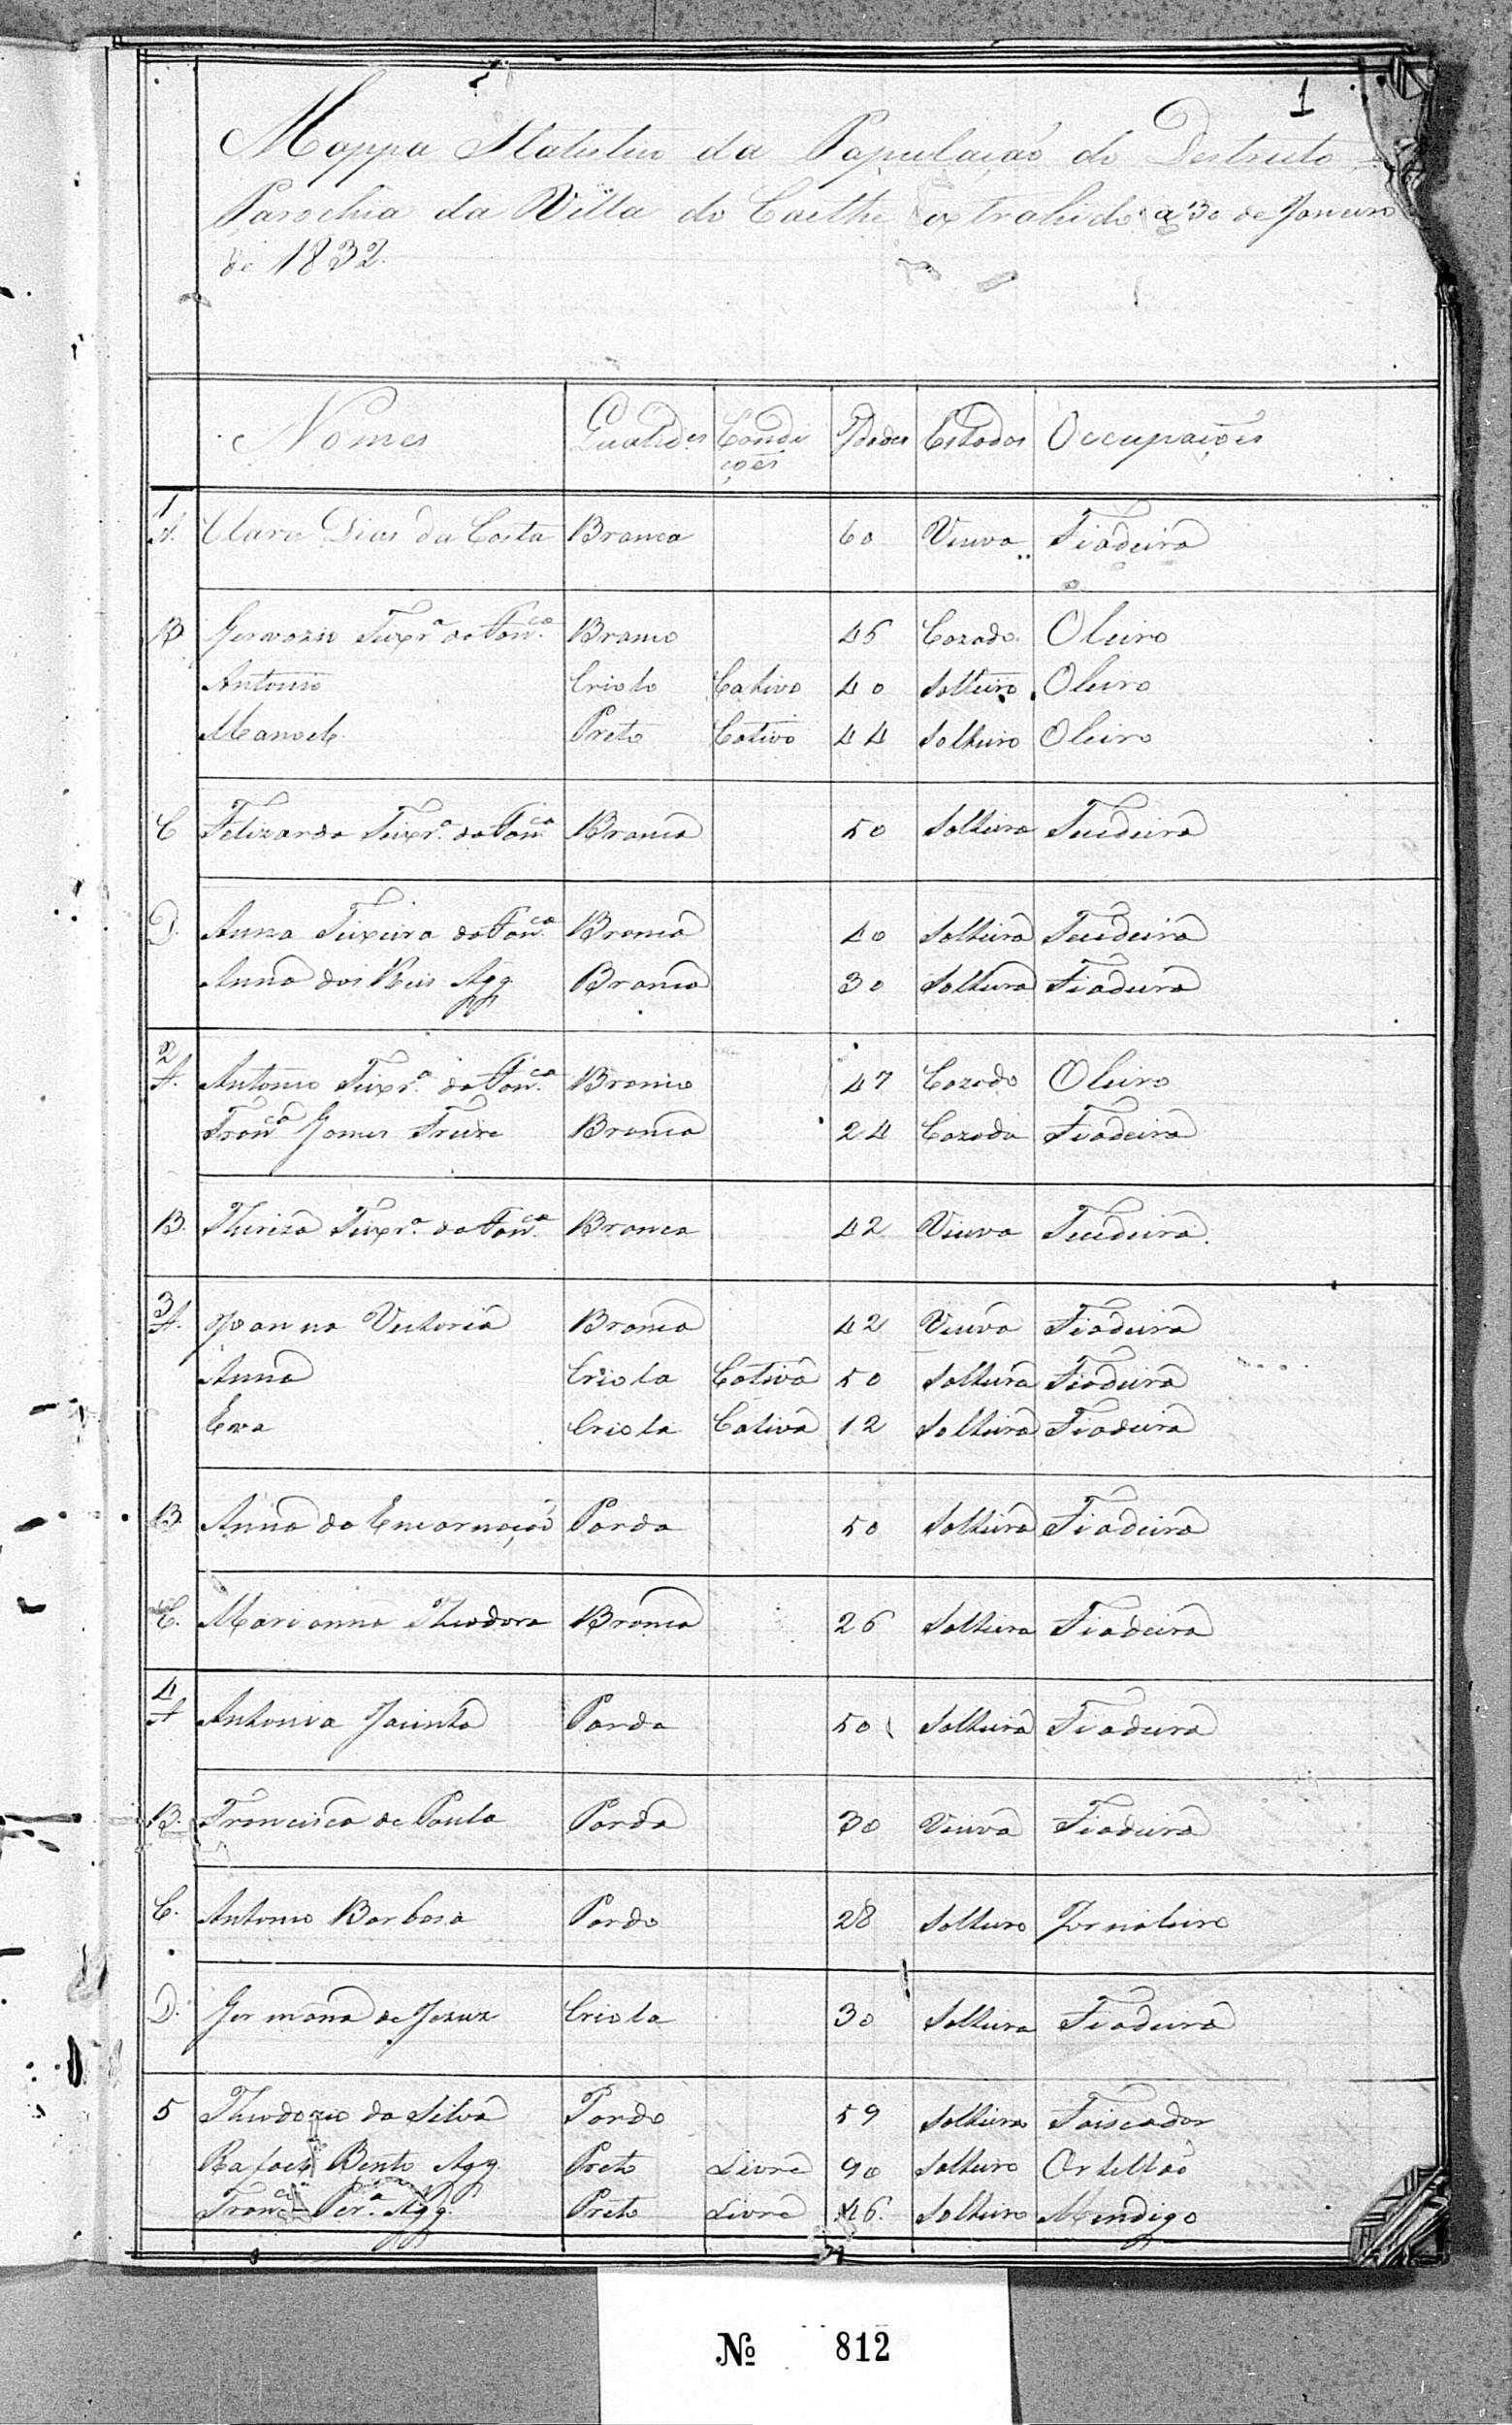 1
Mappa Statistico da População do Destricto
Parochia da Villa do Caethe extrahido a 30 de Janeiro
de 1832.
Nomes Qualid.es Condi Idades Estados Occupações
ções
1
A. Clara Dias da Costa Branca 60 Viuva Fiadeira
B Gervazio Teixr.ª da Fon.ca Branco 46 Cazado Oleiro
Antonio Criolo Cativo 40 Solteiro Oleiro
Manoel Preto Cativo 44 Solteiro Oleiro
C Felizarda Teixr.ª da Fon.ca Branca 50 Solteira Tecedeira
D. Anna Teixeira da Fon.ca Branca 40 Solteira Tecedeira
Anna dos Reis Agg. Branca 30 Solteira Fiadeira
2
A. Antonio Teixr.ª da Fon.ca Branco 47 Cazado Oleiro
Fran.ca Gomes Freire Branca 24 Cazada Fiadeira
B. Thereza Teixr.ª da Fon.ca Branca 42 Viuva Tecedeira.
3
A. Joanna Victoria Branca 42 Viuva Fiadeira
Anna Criola Cativa 50 Solteira Fiadeira
Eva Criola Cativa 12 Solteira Fiadeira
B. Anna da Encarnação Parda 50 Solteira Fiadeira
C. Marianna Theodora Branca 26 Solteira Fiadeira
4
A Antonia Jacinta Parda 50 Solteira Fiadeira
B. Francisca de Paula Parda 30 Viuva Fiadeira
C. Antonio Barbosa Pardo 28 Solteiro Jornaleiro
D. Germana de Jezuz Criola 30 Solteira Fiadeira
5 Theodozio da Silva Pardo 59 Solteiro Faiscador
Rafael Bento Agg. Preto Livre 90 Solteiro Ortellão
Fran.co Per.ª Agg. Preto Livre 46. Solteiro Mendigo
№ 812